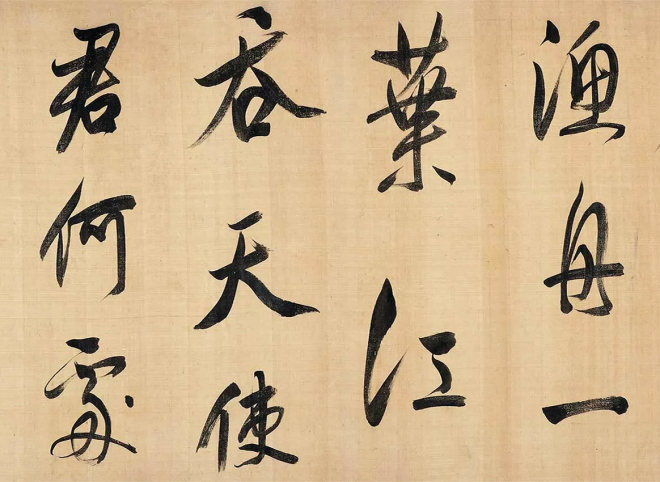 漁舟一
葉江
吞天使
君何處